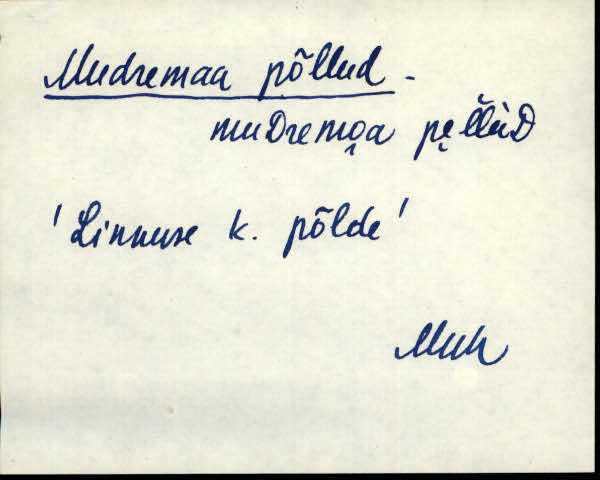 Mudremaa põllud -
muDremo̬a pe̬l̆l̆ùD
'Linnuse k. põlde'
Muh